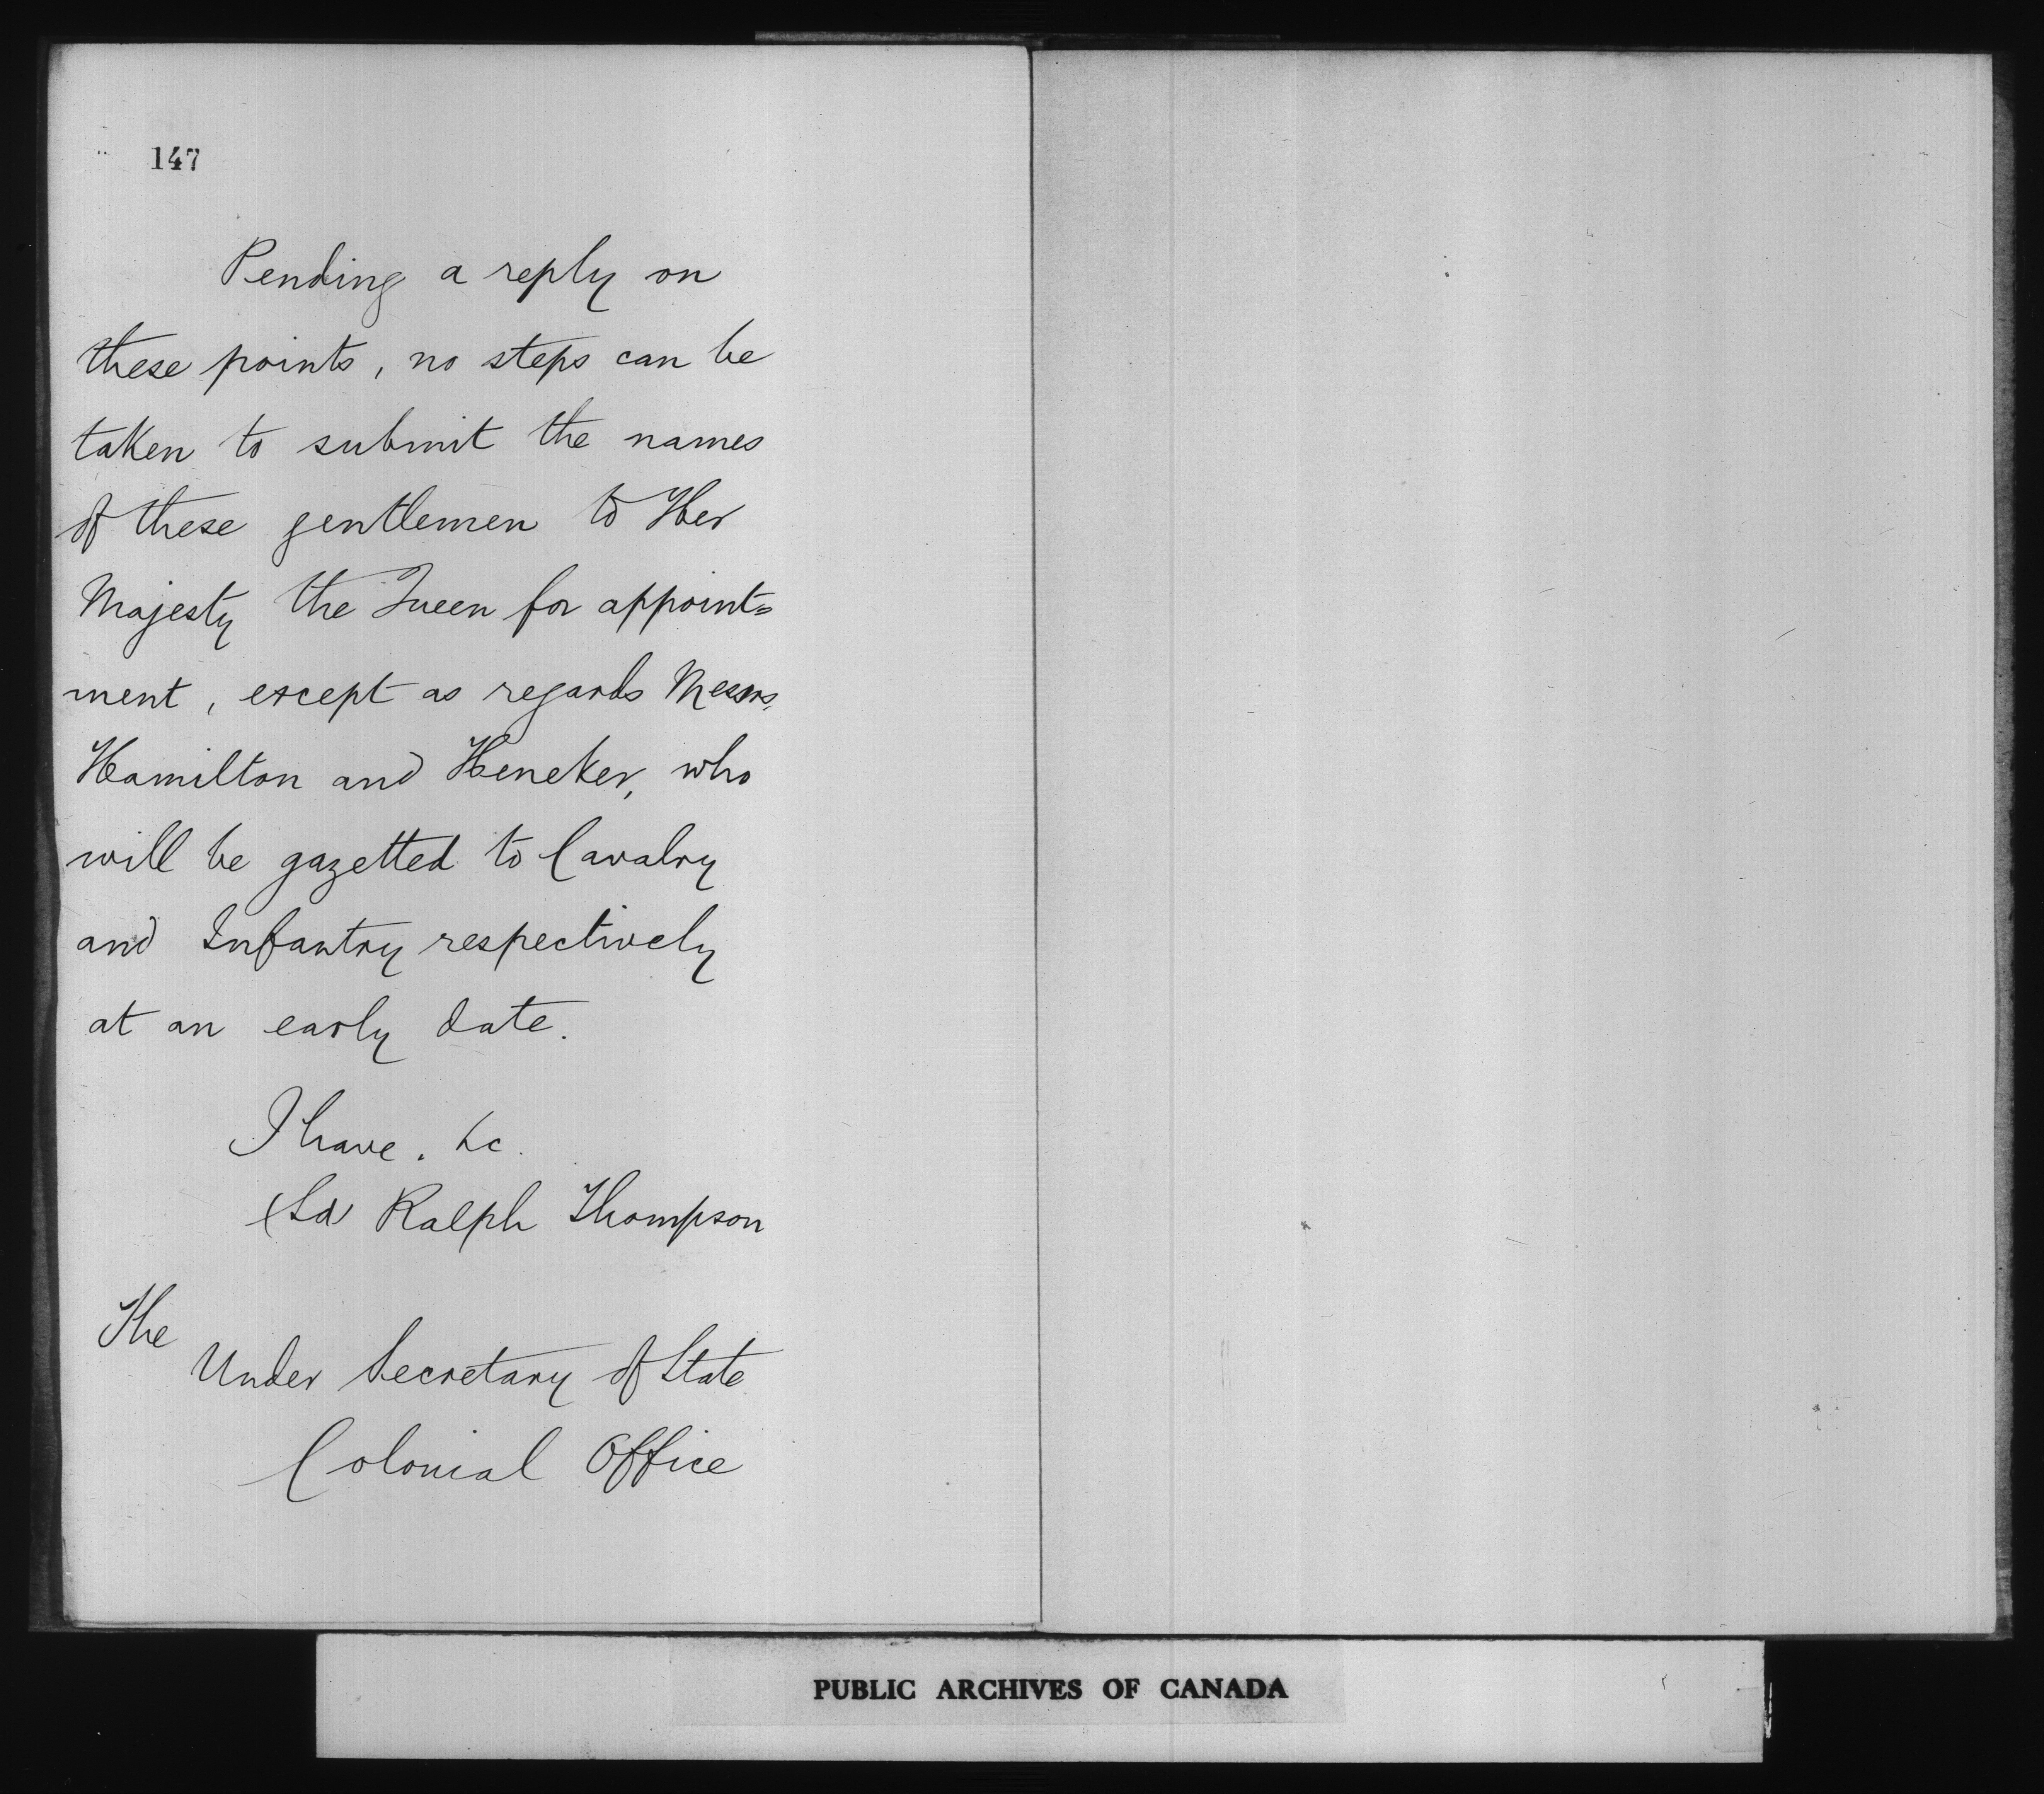 147
Pending a reply on
these points, no steps can be
taken to submit the names
of these gentlemen to Her
Majesty the Queen for appoint=
ment, except as regards Messrs.
Hamilton and Heneker, who
will be gazetted to Cavalry
and Infantry respectively
at an early date.
I have. &c.
(Sd) Ralph Thompson
The
Under Secretary of State
Colonial Office
PUBLIC ARCHIVES OF CANADA